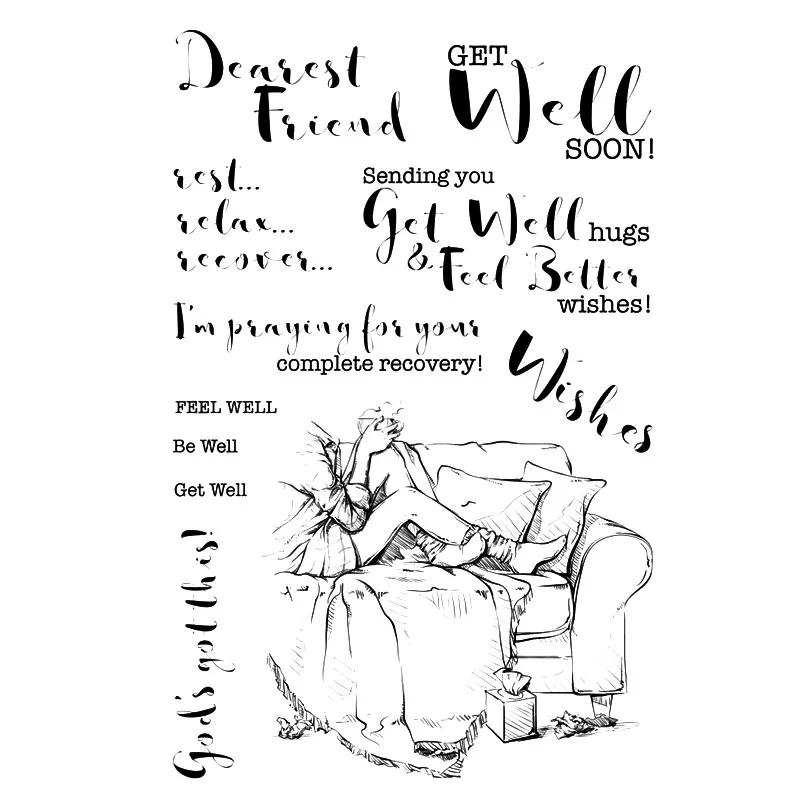 Dearest
Friend
GET
Well
SOON!
rest...
relax...
recover...
Sending you
Get Well hugs
& Feel Better
wishes!
I'm praying for your
complete recovery!
Wishes
FEEL WELL
Be Well
Get Well
God's got this!